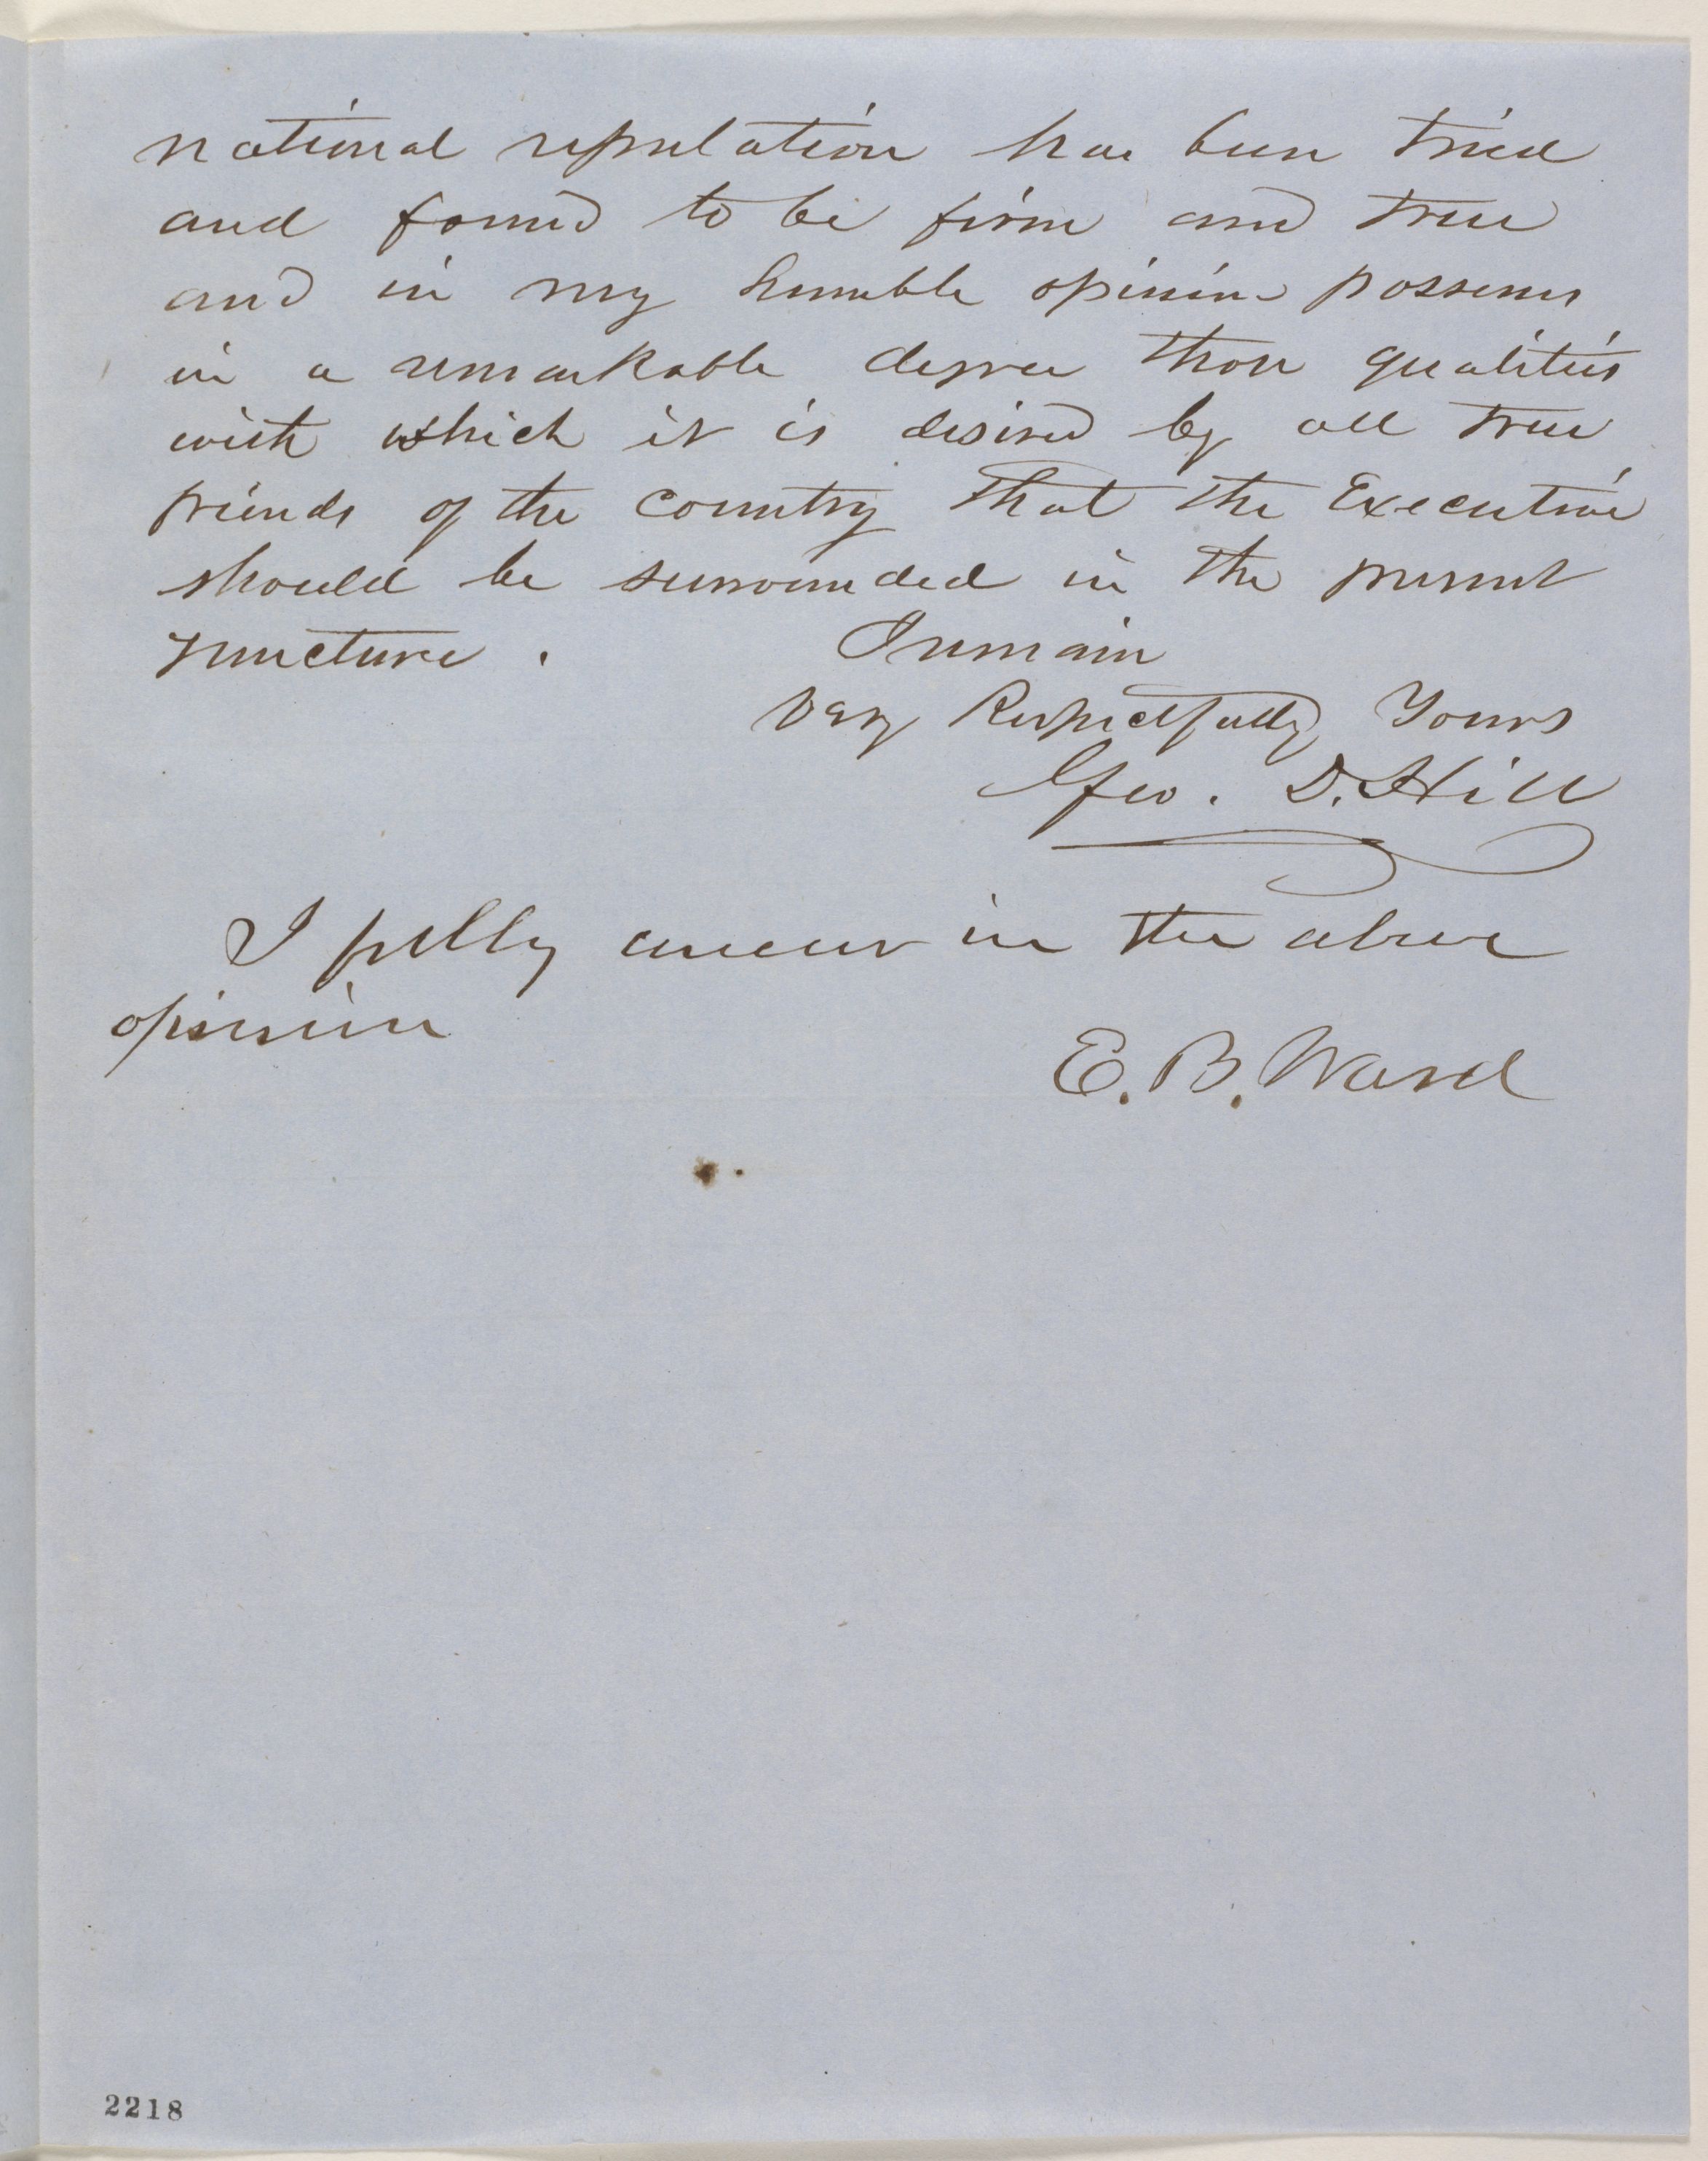 national reputation has been tried
and found to be firm and true
and in my humble opinion possesses
in a remarkable degree those qualities
with which it is desired by all true
friends of the country that the Executive
should be surrounded in the present
juncture . I remain
Very Respectfully Yours
Geo. D. Hill
I fully concur in the above
opinion
E. B. Ward
2218